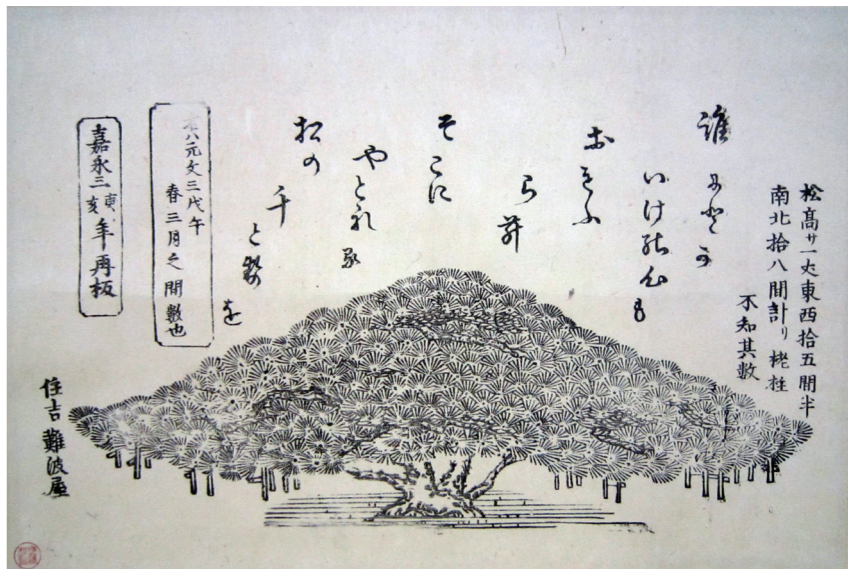 松高サ一丈東西拾五間半
南北拾八間計り
不知其數
誰にとか
いけの心も
おもふ
らむ
そこに
やとれる
松の
千
とせを
元文三戊午
春三月之間數也
嘉永三庚亥年再板
住吉難波屋